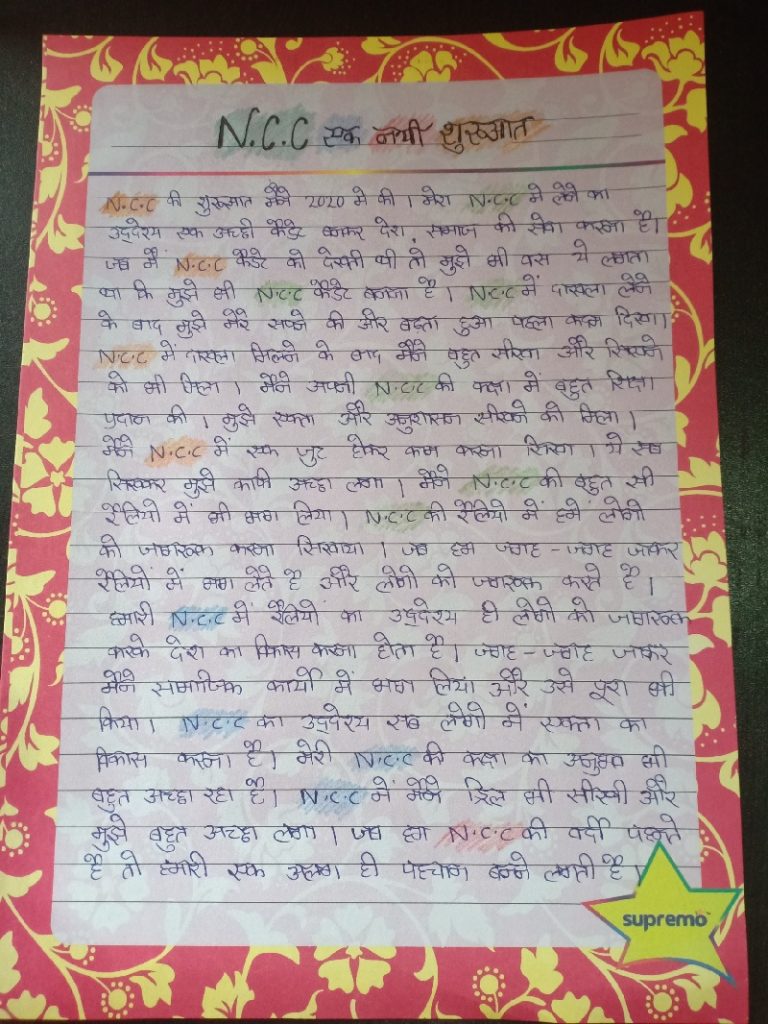 N.C.C एक नयी शुरुआत
N.C.C की शुरुआत मैंने 2020 मे की । मेरा N.C.C मे लेने का
उद्देश्य एक अच्छी कैडेट बनकर देश, समाज की सेवा करना है।
जब मैं N.C.C कैडेट को देखती थी तो मुझे भी बस ये लगता
था कि मुझे भी N.C.C कैडेट बनना है । N.C.C में दाखला लेने
के बाद मुझे मेरे सपने की और बढ़ता हुआ पहला कदम दिखा।
N.C.C में दाखला मिलने के बाद मैंने बहुत सीखा और सिखने
को भी मिला । मैंने अपनी N.C.C की कक्षा में बहुत शिक्षा
प्रदान की । मुझे एकता और अनुशासन सीखने को मिला ।
मैंने N.C.C में एक जुट होकर काम करना सिखा । ये सब
सिखकर मुझे काफी अच्छा लगा । मैंने N.C.C की बहुत सी
रैलियो में भी भाग लिया । N.C.C की रैलियो में हमें लोगो
को जागरूक करना सिखाया । जब हम जगह-जगह जाकर
रैलियों में भाग लेते है और लोगो को जागरूक करते है ।
हमारी N.C.C में रैलियों का उद्देश्य ही लोगो को जागरूक
करके देश का विकास करना होता है । जगह-जगह जाकर
मैंने सामाजिक कार्यो में भाग लिया और उसे पूरा भी
किया । N.C.C का उद्देश्य सब लोगो में एकता का
विकास करना है । मेरी N.C.C की कक्षा का अनुभव भी
बहुत अच्छा रहा है । N.C.C में मैंने ड्रिल भी सीखी और
मुझे बहुत अच्छा लगा । जब हम N.C.C की वर्दी पहनते
है तो हमारी एक अलग ही पहचान बनने लगती है ।
supremo